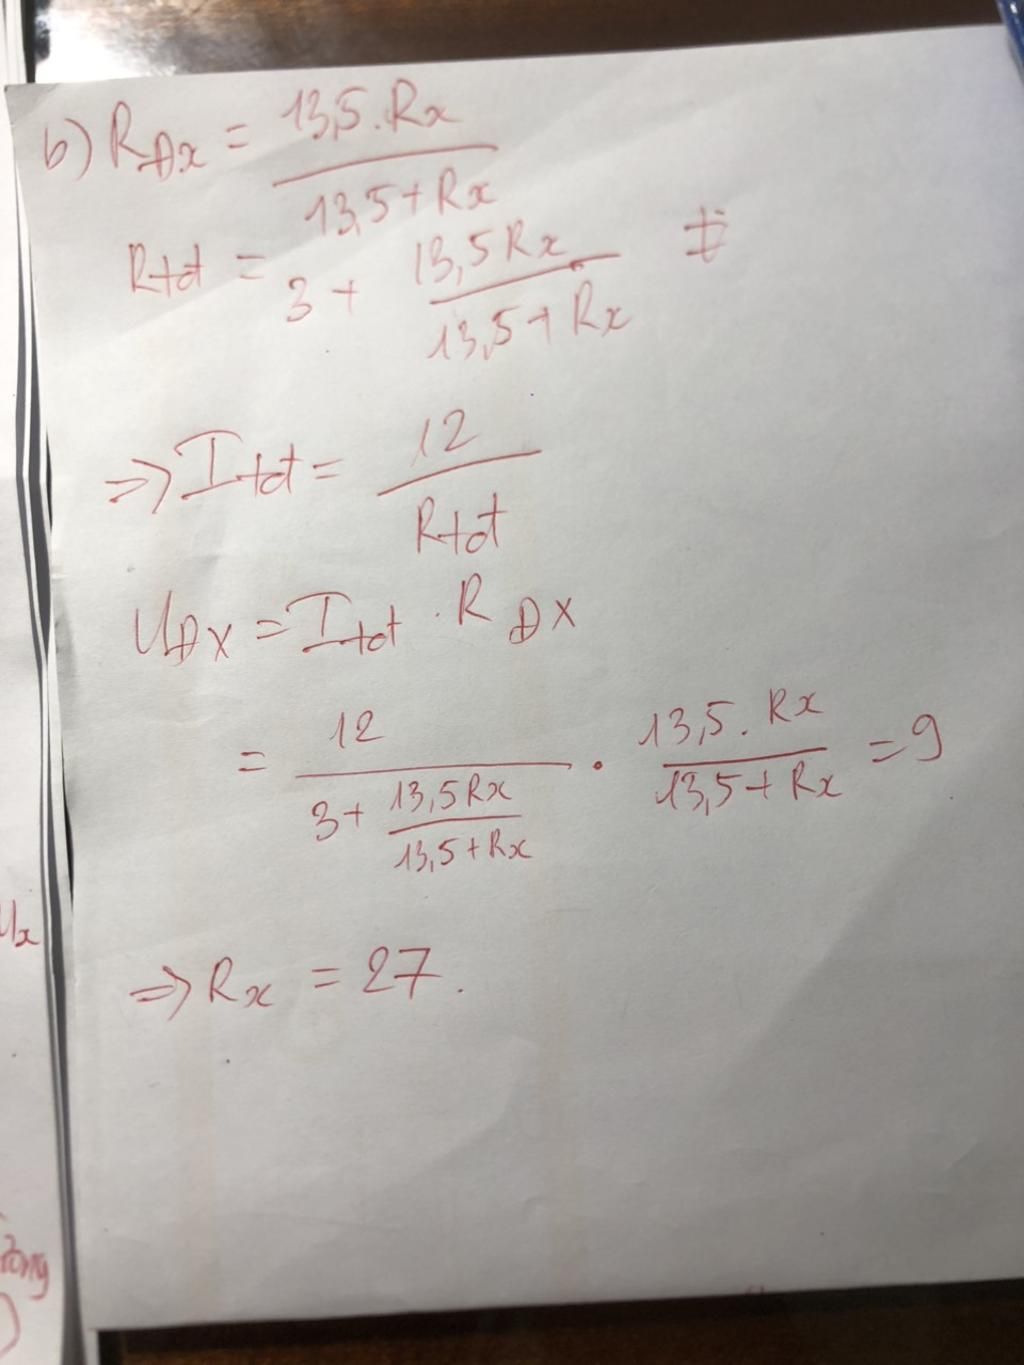 b) RĐx = 13,5.Rx / 13,5+Rx
Rtđ = 3 + 13,5Rx / 13,5+Rx
=> Itđ = 12 / Rtđ
UĐX = Itđ . RĐX
= 12 / 3+ 13,5Rx / 13,5+Rx . 13,5.Rx / 13,5+Rx = 9
Ux
=> Rx = 27.